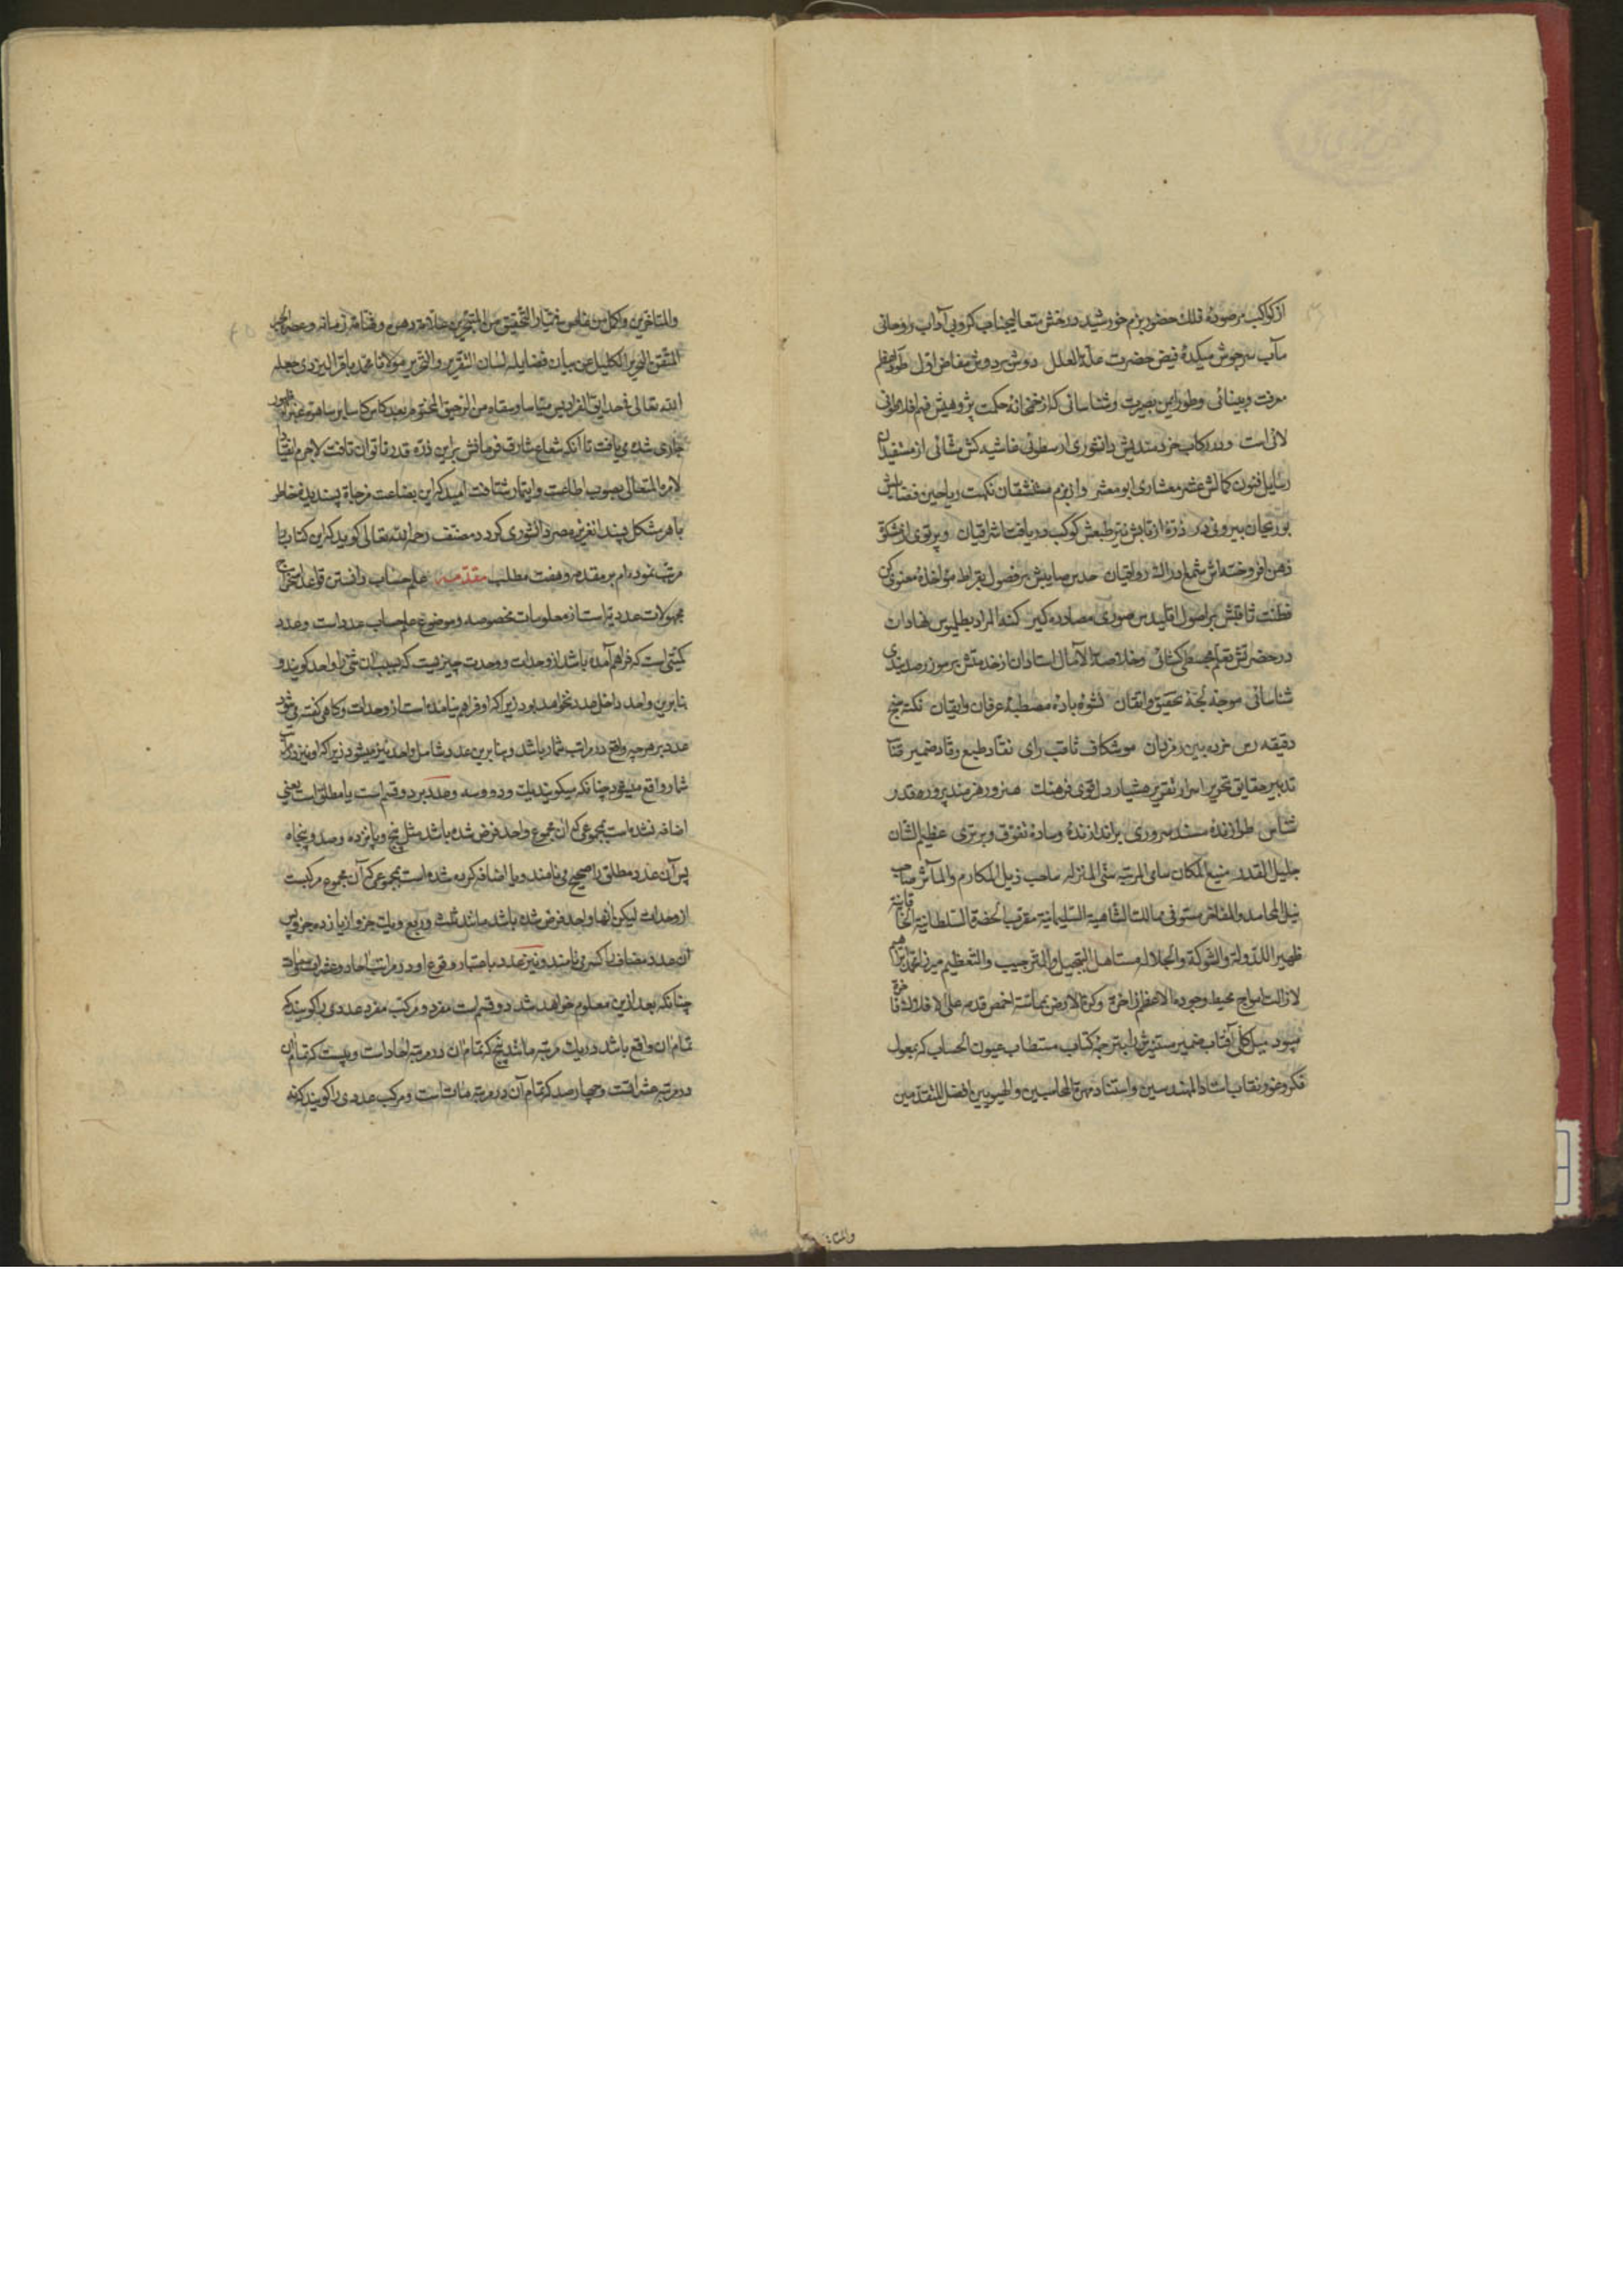 از کواکب مرصوده فلک حضور بزم خورشید درخش متعالیجناب کروبی آداب روحانی
مآب سرجوش میکدهٔ فیض حضرت علة العلل دوش بردوش مفاض اول طور اعظم
معرفت و بینائی و طور ایمن بصیرت و شناسائی که از خمخانهٔ حکمت پژوهیش فهم افلاطونی
لائی است و در رکاب خردمندیش دانشوری ارسطوئی غاشیه کش مشائی از مستفیدان
رسایل فنون کمالش عشر معشاری ابو معشر و از بزم مستنشقان نکهت ریاحین فضایلش
بوریحان بیرونی در ذرهٔ از تابش نیر طبعش کوکب دریافت اشراقیان و پرتوی از مشکوة
ذهن افروخته‌اش شمع ادراک رواقیان حدس صایبش بر فصول بقراط مؤاخذهٔ معنوی کن
فطنت ثاقبش بر اصول اقلیدس صوری مصادره گیر کنه المراد بطلمیوس نهادان
در حضرتش تعلم مجسطی گشائی و خلاصة الآمال استادان از خدمتش بر موز رصد بندی
شناسائی موجهٔ لجهٔ تحقیق و اتقان نشوه بادهٔ مصطبهٔ عرفان و ایقان نکته سنج
دقیقه رس خرده بین رمزدان موشکاف ثاقب رای نقاد طبع وقاد ضمیر
تدبیر حقایق تحریر اسرار تقریر هشیار دل قوی فرهنک هنرور هنرمند پرور قدر
شناس طرازندهٔ مسند سروری برازندهٔ وسادهٔ تفوق و برتری عظیم الشان
جلیل القدر منیع المکان سامی المرتبه سنی المنزله صاحب ذیل المکارم والمآثر صاحب
نیل المحامد والمفاخر مستوفی ممالک الشاهیة السلیمانیة مقرب الحضرة السلطانیة الخاقانیة
ظهیر الدولة والشوکة والجلالة مستاهل التبجیل والترحیب والتعظیم میرزا محمد ابراهیم
لازالت امواج محیط وجوده الاعظم زاخرة وکرة الارض بماسة اخمص قدمه علی الافلاک فاخرة
میل کلی آفتاب ضمیر مستنیرش را بترجمهٔ کتاب مستطاب عیون الحساب که معمول
فکر و غور نقاب استاد المهندسین و استناد مهرة المحاسبین افضل المتقدمین
والمتا
والمتاخرین و اکمل من غاص فی تیار التحقیق من المتبحرین علامة دهره و فهامة زمانه و عصره الحبر
المتقن النحریر الکلیل عن بیان فضایله لسان التقریر والتحریر مولانا محمد باقر الیزدی جعله
الله تعالی فی حدایق الفرادیس میاسا و سقاه من الرحیق المختوم بعد کاس کاسا بر ساهره غبرا ظهور
جاری شده می یافت تا آنکه شعاع شارق فرمانش بر این ذره قدر ناتوان تافت لاجرم انقیادا
لامره المتعالی بصوب اطاعت و ایتمار شتافت امید که این بضاعت مزجاة پسندیدهٔ خاطر
باهر مشکل پسند آن عزیز مصر دانشوری گردد مصنف رحمه الله تعالی گوید که این کتاب را
مرتب نموده ام بر مقدمه و هفت مطلب مقدمه علم حساب دانستن قواعد استخراج
مجهولات عددیه است از معلومات مخصوصه و موضوع علم حساب عدد است و عدد
کمیتی است که فراهم آمده باشد از وحدات و وحدت چیزیست که بسبب آن شئ را واحد گویند و
بنابرین واحد داخل عدد نخواهد بود زیرا که او فراهم نیامده است از وحدات و گاهی گفته می شود
عدد بر هر چه واقع در مراتب شمار باشد و بنابرین عدد شامل واحد نیز میشود زیرا که او نیز در مراتب
شمار واقع میشود چنانکه میگویند یک و ده و سه و عدد بر دو قسم است یا مطلق است یعنی
اضافه نشده است بمجموعی که آن مجموع واحد فرض شده باشد مثل پنج و پانزده و صد و پنجاه
پس آن عدد مطلق را صحیح می نامند و یا اضافه کرده شده است بمجموعی که آن مجموع مرکبست
از وحدات لیکن آنها واحد فرض شده باشد مانند ثلث و ربع و یک جزو از یازده جزو پس
آن عدد مضاف را کسر می نامند و نیز عدد باعتبار وقوع او در مراتب احاد و عشرات و مئات
چنانکه بعد ازین معلوم خواهد شد دو قسم است مفرد و مرکب مفرد عددی را گویند که
تمام آن واقع باشد در یک مرتبه مانند پنج که تمام آن در مرتبه احاد است و بیست که تمام آن
در مرتبه عشراتست و چهارصد که تمام آن در مرتبه مئات است و مرکب عددی را گویند که نه